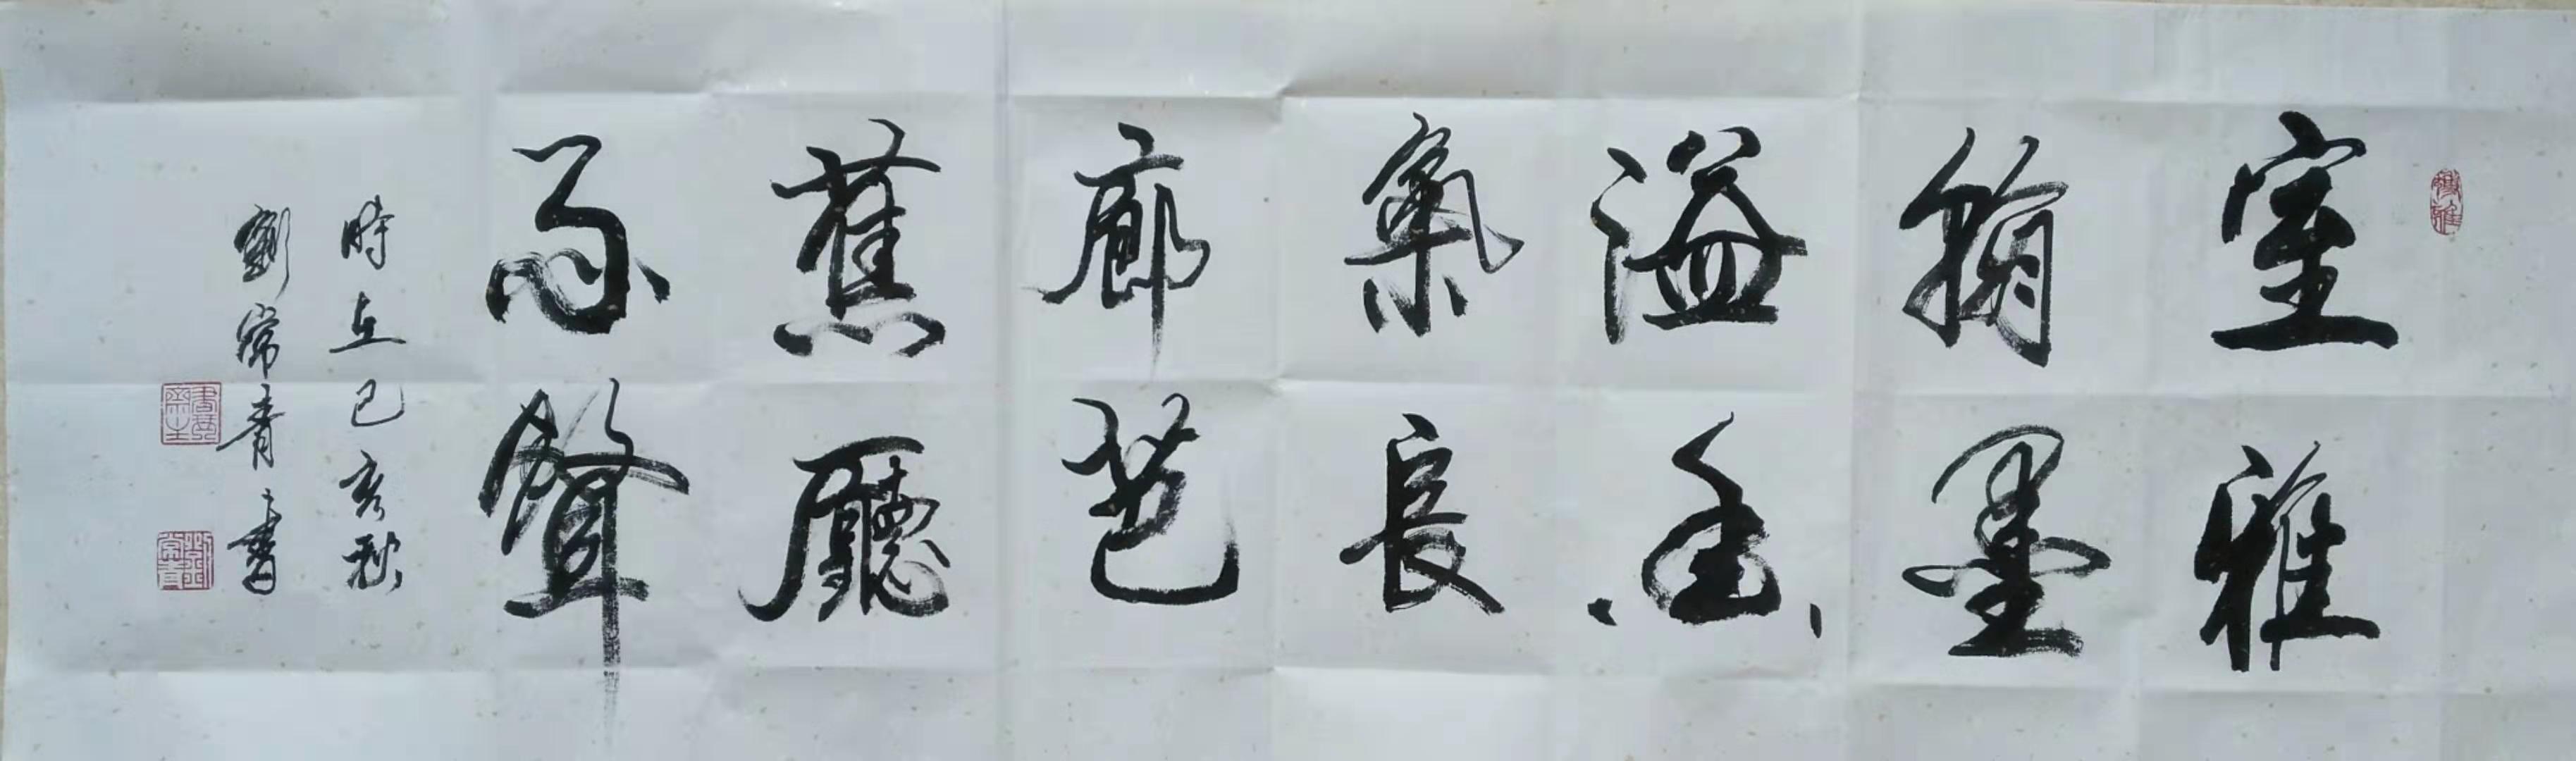 室雅
翰墨
溢香
氣長
廊芭
蕉廳
雨聲
時在己亥秋
劉常青書